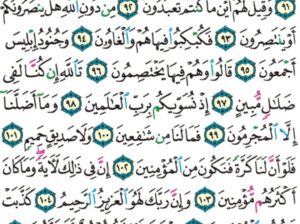 ٩١ وَقِيلَ لَهُمْ أَيْنَ مَا كُنتُمْ تَعْبُدُونَ ٩٢ مِن دُونِ اللَّهِ هَلْ يَنصُرُونَكُمْ
أَوْ يَنتَصِرُونَ ٩٣ فَكُبْكِبُوا فِيهَا هُمْ وَالْغَاوُونَ ٩٤ وَجُنُودُ إِبْلِيسَ
أَجْمَعُونَ ٩٥ قَالُوا وَهُمْ فِيهَا يَخْتَصِمُونَ ٩٦ تَاللَّهِ إِن كُنَّا لَفِي
ضَلَالٍ مُّبِينٍ ٩٧ إِذْ نُسَوِّيكُم بِرَبِّ الْعَالَمِينَ ٩٨ وَمَا أَضَلَّنَا
إِلَّا الْمُجْرِمُونَ ٩٩ فَمَا لَنَا مِن شَافِعِينَ ١٠٠ وَلَا صَدِيقٍ حَمِيمٍ ١٠١
فَلَوْ أَنَّ لَنَا كَرَّةً فَنَكُونَ مِنَ الْمُؤْمِنِينَ ١٠٢ إِنَّ فِي ذَٰلِكَ لَآيَةً وَمَا كَانَ
أَكْثَرُهُم مُّؤْمِنِينَ ١٠٣ وَإِنَّ رَبَّكَ لَهُوَ الْعَزِيزُ الرَّحِيمُ ١٠٤ كَذَّبَتْ